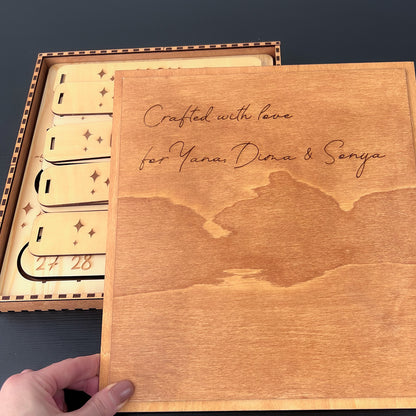 Crafted with love
for Yana, Dima & Sonya
27 28